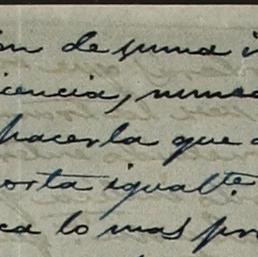 ón de suma i
icencia, nunca
hacerla que
orta igualte
ca lo mas pro